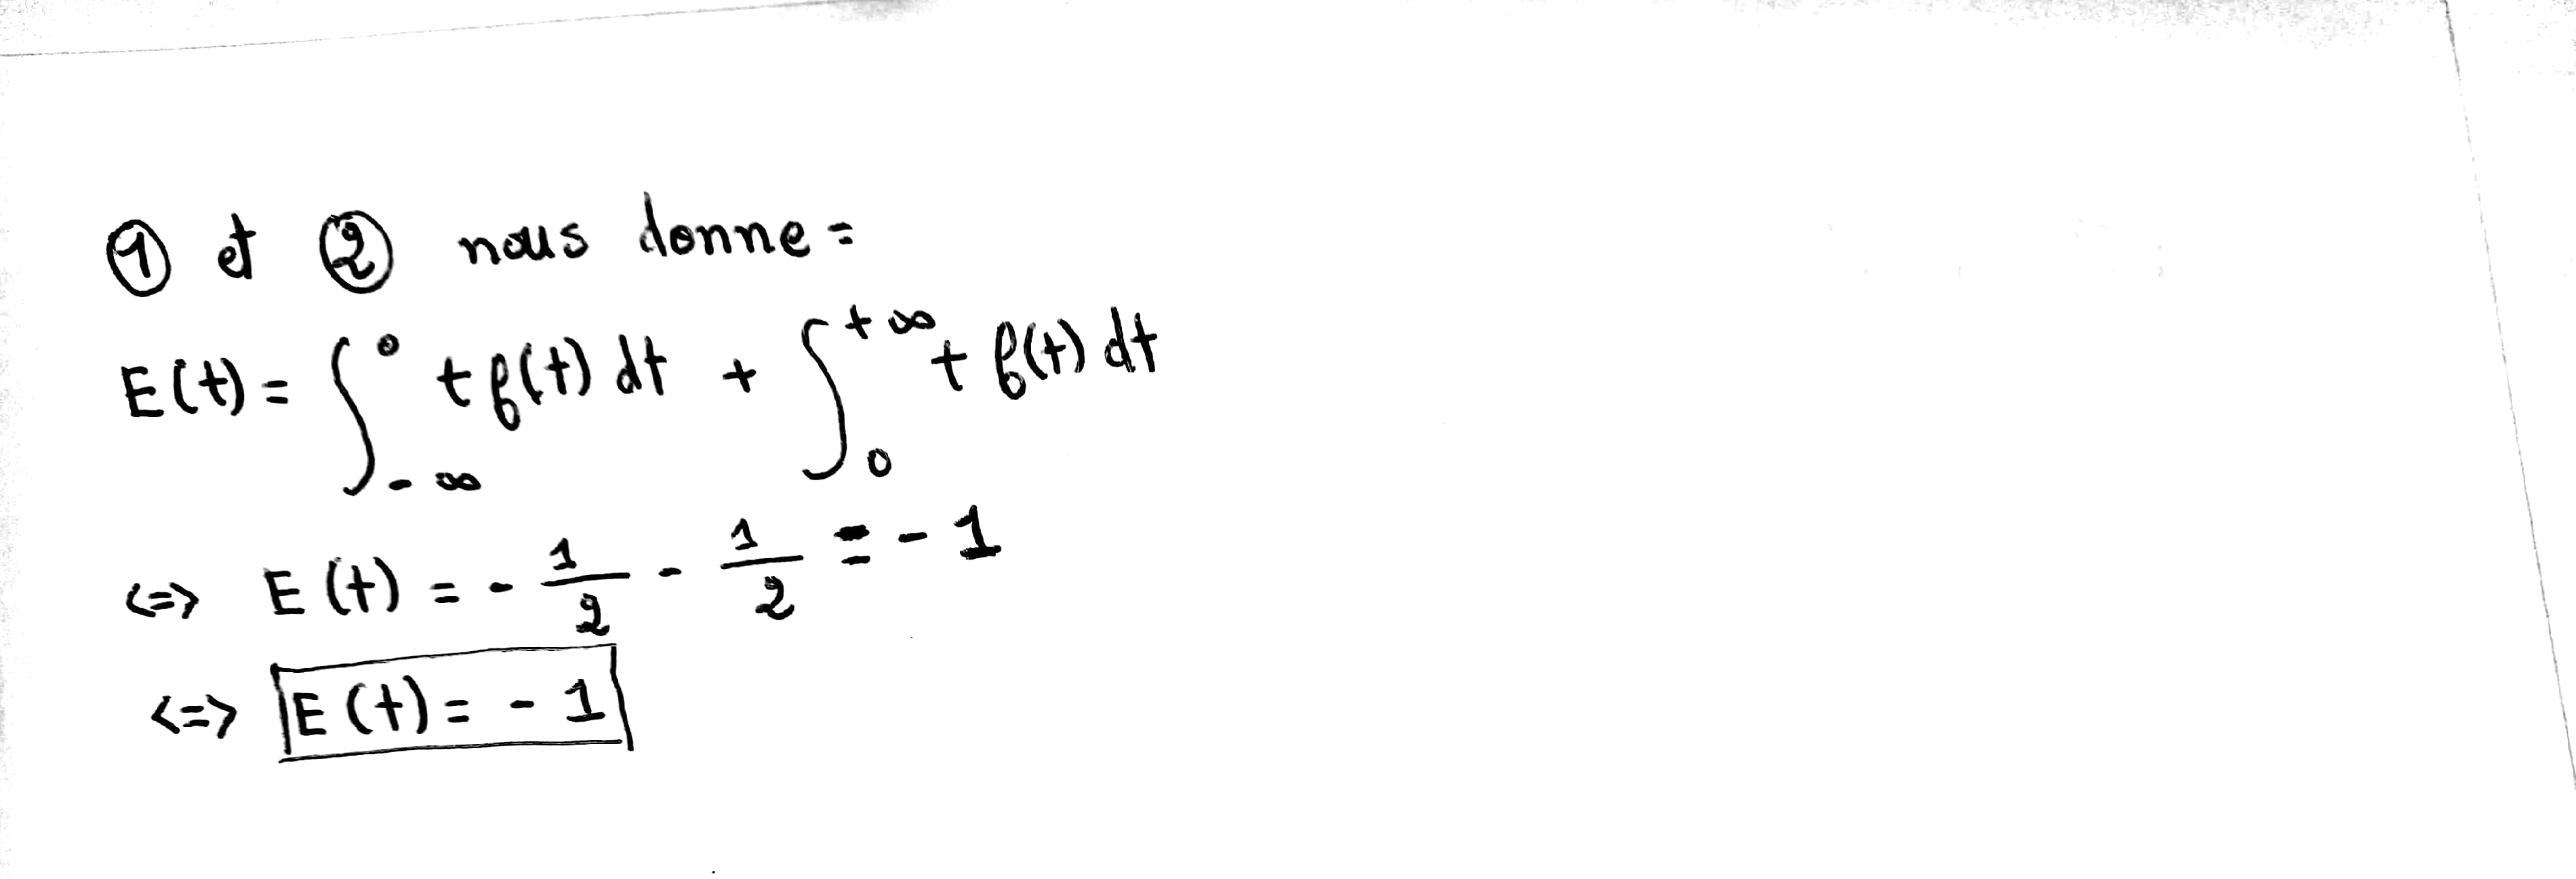 ① et ② nous donne =
E(t) = ∫_{-∞}^{0} t f(t) dt + ∫_{0}^{+∞} t f(t) dt
<=> E(t) = - 1/2 - 1/2 = - 1
<=> E(t) = - 1